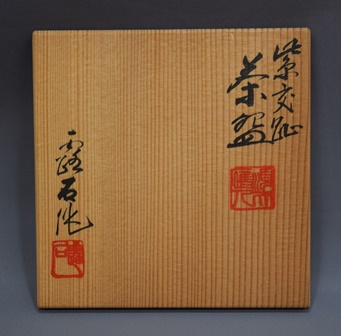 紫交趾
茶盌
露石作